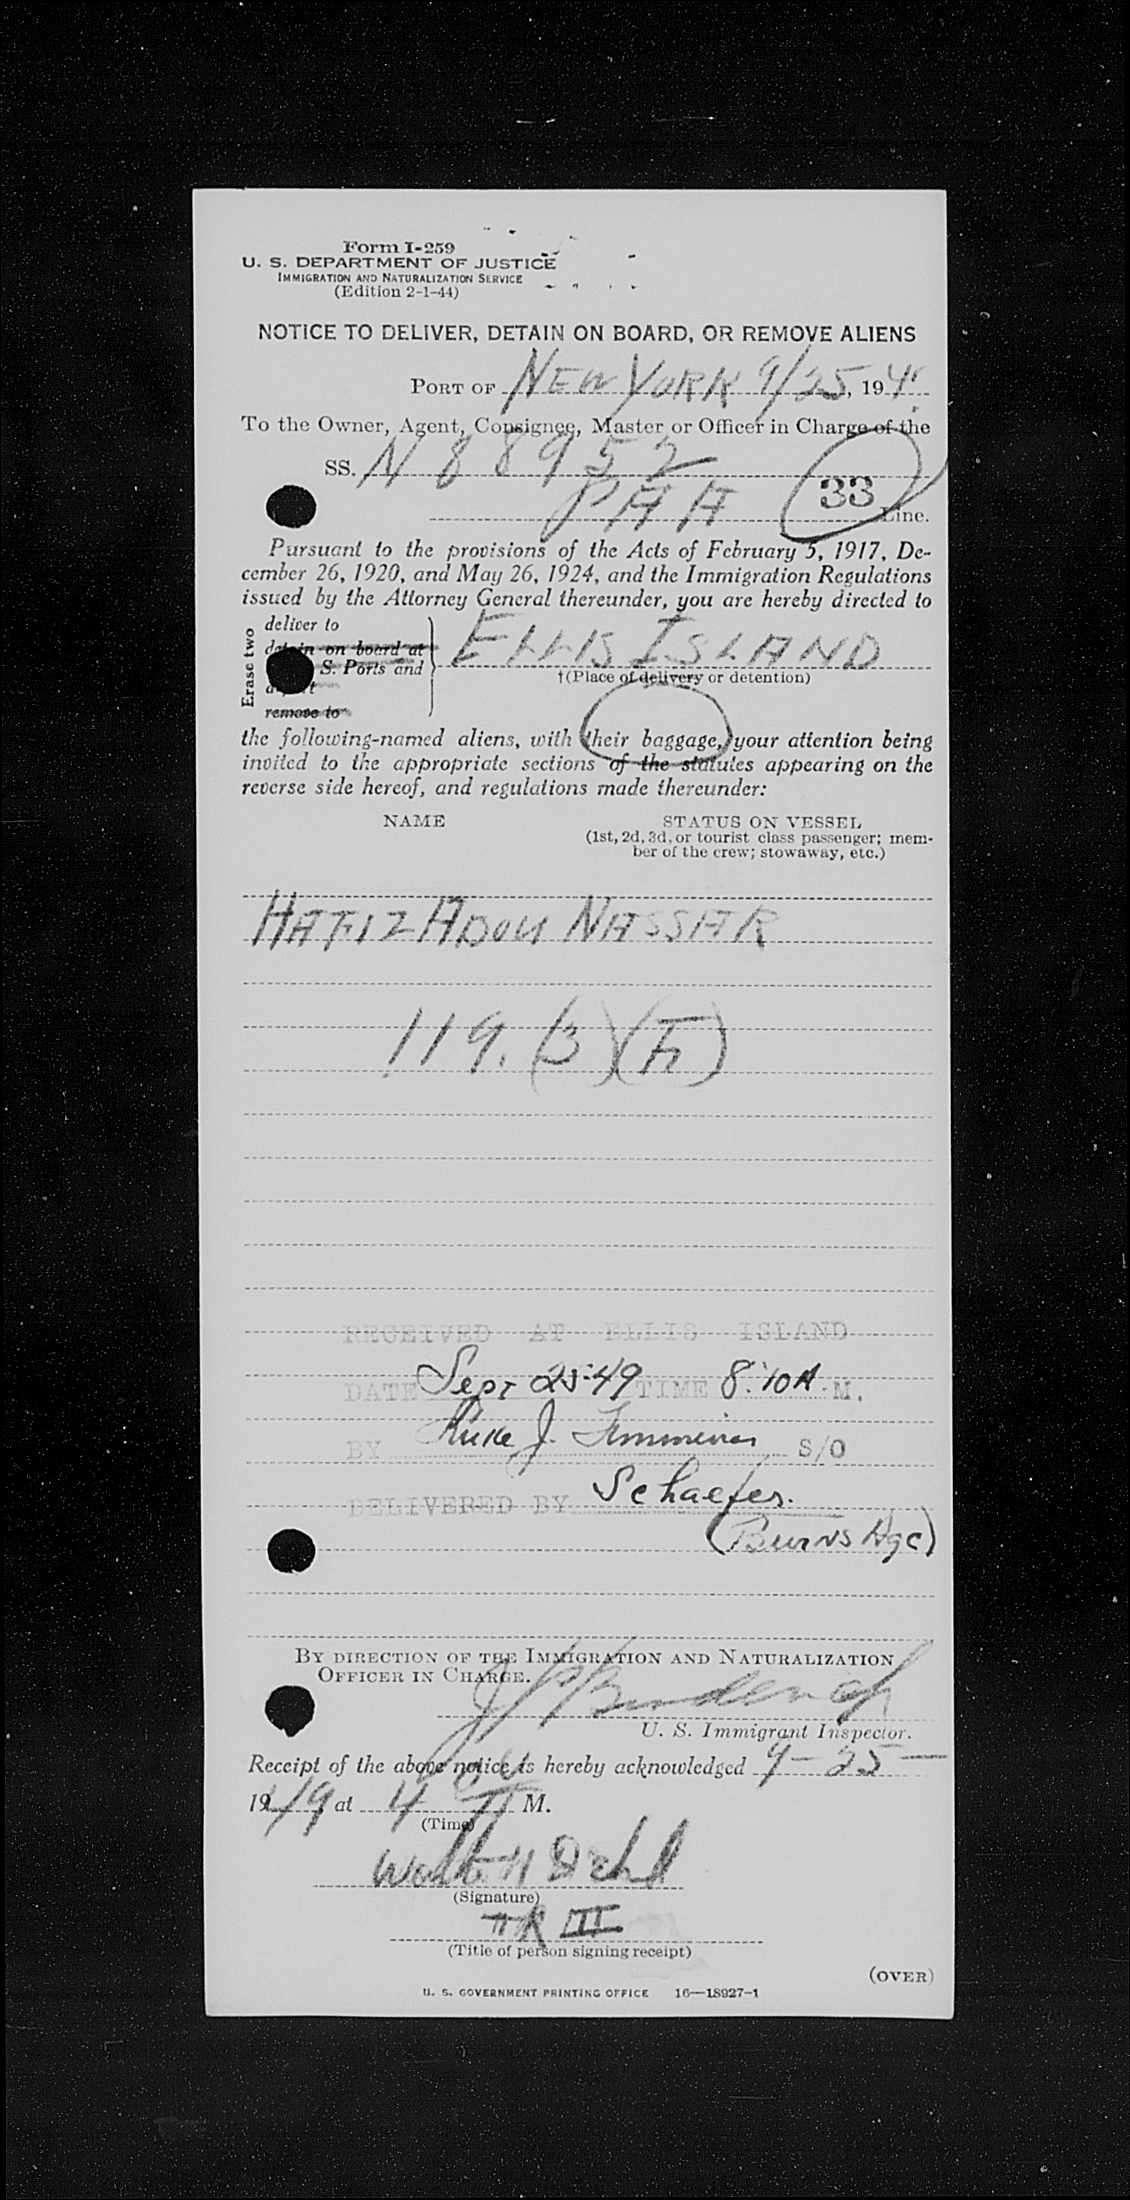 Form I-259
U. S. DEPARTMENT OF JUSTICE
IMMIGRATION AND NATURALIZATION SERVICE
(Edition 2-1-44)
NOTICE TO DELIVER, DETAIN ON BOARD, OR REMOVE ALIENS
PORT OF NEW YORK 9/25, 194
To the Owner, Agent, Consignee, Master or Officer in Charge of the
SS. N 88952
33
PAA Line.
Pursuant to the provisions of the Acts of February 5, 1917, De-
cember 26, 1920, and May 26, 1924, and the Immigration Regulations
issued by the Attorney General thereunder, you are hereby directed to
Erase two
deliver to
detain on board at
S. Ports and
remove to
ELLIS ISLAND
†(Place of delivery or detention)
the following-named aliens, with their baggage, your attention being
invited to the appropriate sections of the statutes appearing on the
reverse side hereof, and regulations made thereunder:
NAME STATUS ON VESSEL
(1st, 2d, 3d, or tourist class passenger; mem-
ber of the crew; stowaway, etc.)
HAFIZ ABOU NASSAR
119. (3)
RECEIVED AT ELLIS ISLAND
DATE Sept 25-49 TIME 8:40A M.
BY J. S/O
DELIVERED BY Schaefer.
(Burns Agc)
BY DIRECTION OF THE IMMIGRATION AND NATURALIZATION
OFFICER IN CHARGE.
U. S. Immigrant Inspector.
Receipt of the above notice is hereby acknowledged 9-25-
1949 at 4 M.
(Time)
(Signature)
III
(Title of person signing receipt)
(OVER)
U. S. GOVERNMENT PRINTING OFFICE 16—18927-1